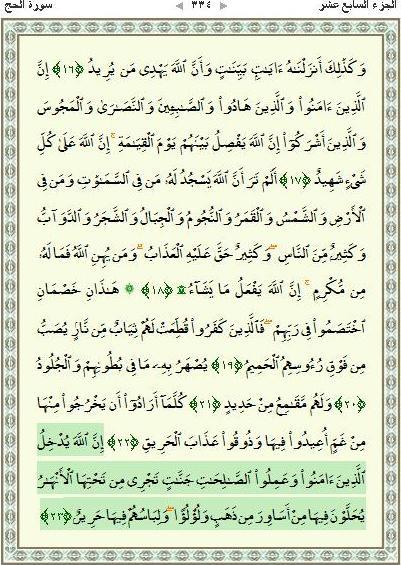 الجزء السابع عشر ٣٣٤ سورة الحج
وَكَذَٰلِكَ أَنزَلْنَٰهُ ءَايَٰتٍۭ بَيِّنَٰتٍ وَأَنَّ ٱللَّهَ يَهْدِى مَن يُرِيدُ ﴿١٦﴾ إِنَّ
ٱلَّذِينَ ءَامَنُوا۟ وَٱلَّذِينَ هَادُوا۟ وَٱلصَّٰبِـِٔينَ وَٱلنَّصَٰرَىٰ وَٱلْمَجُوسَ
وَٱلَّذِينَ أَشْرَكُوٓا۟ إِنَّ ٱللَّهَ يَفْصِلُ بَيْنَهُمْ يَوْمَ ٱلْقِيَٰمَةِ ۚ إِنَّ ٱللَّهَ عَلَىٰ كُلِّ
شَىْءٍ شَهِيدٌ ﴿١٧﴾ أَلَمْ تَرَ أَنَّ ٱللَّهَ يَسْجُدُ لَهُۥ مَن فِى ٱلسَّمَٰوَٰتِ وَمَن فِى
ٱلْأَرْضِ وَٱلشَّمْسُ وَٱلْقَمَرُ وَٱلنُّجُومُ وَٱلْجِبَالُ وَٱلشَّجَرُ وَٱلدَّوَآبُّ
وَكَثِيرٌ مِّنَ ٱلنَّاسِ ۖ وَكَثِيرٌ حَقَّ عَلَيْهِ ٱلْعَذَابُ ۗ وَمَن يُهِنِ ٱللَّهُ فَمَا لَهُۥ
مِن مُّكْرِمٍ ۚ إِنَّ ٱللَّهَ يَفْعَلُ مَا يَشَآءُ ۩ ﴿١٨﴾ ۞ هَٰذَانِ خَصْمَانِ
ٱخْتَصَمُوا۟ فِى رَبِّهِمْ ۖ فَٱلَّذِينَ كَفَرُوا۟ قُطِّعَتْ لَهُمْ ثِيَابٌ مِّن نَّارٍ يُصَبُّ
مِن فَوْقِ رُءُوسِهِمُ ٱلْحَمِيمُ ﴿١٩﴾ يُصْهَرُ بِهِۦ مَا فِى بُطُونِهِمْ وَٱلْجُلُودُ
﴿٢٠﴾ وَلَهُم مَّقَٰمِعُ مِنْ حَدِيدٍ ﴿٢١﴾ كُلَّمَآ أَرَادُوٓا۟ أَن يَخْرُجُوا۟ مِنْهَا
مِنْ غَمٍّ أُعِيدُوا۟ فِيهَا وَذُوقُوا۟ عَذَابَ ٱلْحَرِيقِ ﴿٢٢﴾ إِنَّ ٱللَّهَ يُدْخِلُ
ٱلَّذِينَ ءَامَنُوا۟ وَعَمِلُوا۟ ٱلصَّٰلِحَٰتِ جَنَّٰتٍ تَجْرِى مِن تَحْتِهَا ٱلْأَنْهَٰرُ
يُحَلَّوْنَ فِيهَا مِنْ أَسَاوِرَ مِن ذَهَبٍ وَلُؤْلُؤًا ۖ وَلِبَاسُهُمْ فِيهَا حَرِيرٌ ﴿٢٣﴾